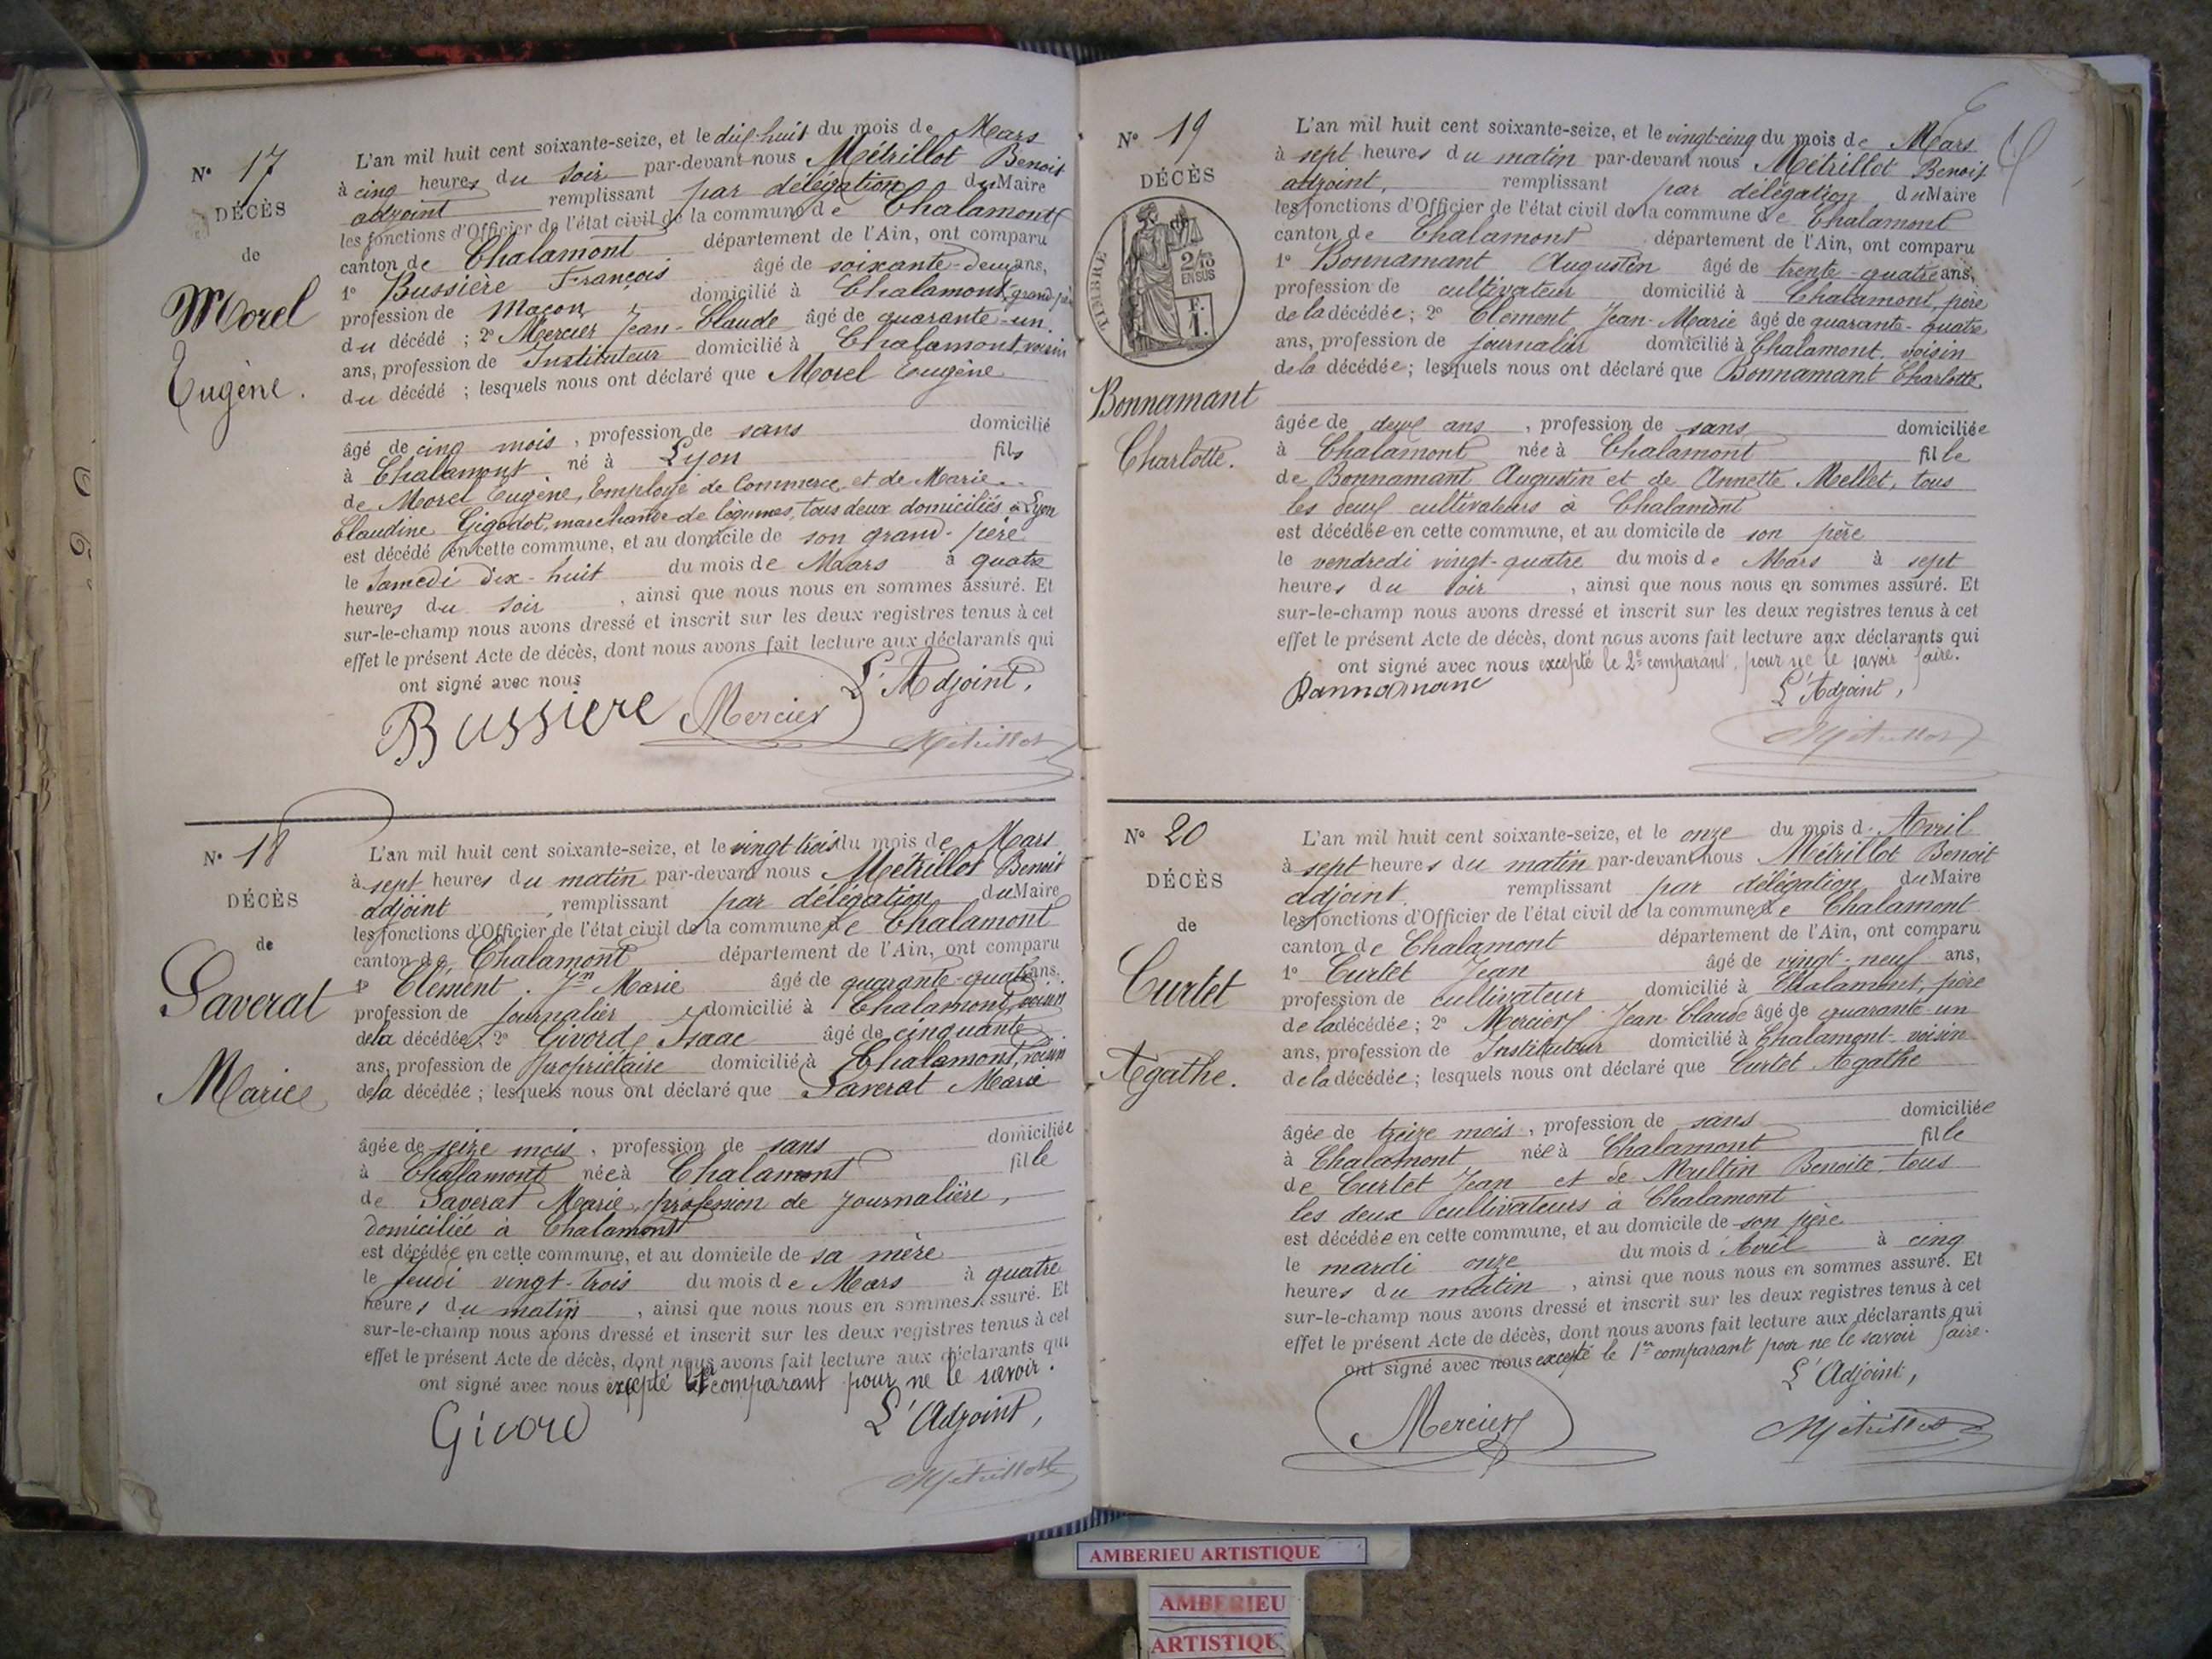 N° 17
DÉCÈS
de
Morel
Eugène.
L'an mil huit cent soixante-seize, et le dix-huit du mois de Mars
à cinq heures du soir par-devant nous Métrillot Benoit
adjoint remplissant par délégation du Maire
les fonctions d'Officier de l'état civil de la commune de Chalamont
canton de Chalamont département de l'Ain, ont comparu
1° Bussière François âgé de soixante-deux ans,
profession de Maçon domicilié à Chalamont, grand-père
du décédé ; 2° Mercier Jean-Claude âgé de quarante-un
ans, profession de Instituteur domicilié à Chalamont, voisin
du décédé ; lesquels nous ont déclaré que Morel Eugène
âgé de cinq mois, profession de sans domicilié
à Chalamont né à Lyon fils
de Morel Eugène, Employé de Commerce et de Marie
Claudine Gigodot, marchande de légumes, tous deux domiciliés à Lyon
est décédé en cette commune, et au domicile de son grand-père
le Samedi dix-huit du mois de Mars à quatre
heures du soir, ainsi que nous nous en sommes assuré. Et
sur-le-champ nous avons dressé et inscrit sur les deux registres tenus à cet
effet le présent Acte de décès, dont nous avons fait lecture aux déclarants qui
ont signé avec nous
L'Adjoint,
Bussiere Mercier Métrillot
N° 18
DÉCÈS
de
Saverat
Marie
L'an mil huit cent soixante-seize, et le vingt-trois du mois de Mars
à sept heures du matin par-devant nous Métrillot Benoit
adjoint, remplissant par délégation du Maire
les fonctions d'Officier de l'état civil de la commune de Chalamont
canton de Chalamont département de l'Ain, ont comparu
1° Clément Jn Marie âgé de quarante-quatre ans,
profession de journalier domicilié à Chalamont, voisin
de la décédée ; 2° Givord Isaac âgé de cinquante
ans, profession de propriétaire domicilié à Chalamont, voisin
de la décédée ; lesquels nous ont déclaré que Saverat Marie
âgée de seize mois, profession de sans domiciliée
à Chalamont née à Chalamont fille
de Saverat Marie, profession de journalière,
domiciliée à Chalamont
est décédée en cette commune, et au domicile de sa mère
le jeudi vingt-trois du mois de Mars à quatre
heures du matin, ainsi que nous nous en sommes assuré. Et
sur-le-champ nous avons dressé et inscrit sur les deux registres tenus à cet
effet le présent Acte de décès, dont nous avons fait lecture aux déclarants qui
ont signé avec nous excepté le 1er comparant pour ne le savoir.
Givord L'Adjoint,
Métrillot
N° 19
DÉCÈS
TIMBRE
2/10
EN SUS
F.
1.
Bonnamant
Charlotte.
L'an mil huit cent soixante-seize, et le vingt-cinq du mois de Mars
à sept heures du matin par-devant nous Métrillot Benoit
adjoint, remplissant par délégation du Maire
les fonctions d'Officier de l'état civil de la commune de Chalamont
canton de Chalamont département de l'Ain, ont comparu
1° Bonnamant Augustin âgé de trente-quatre ans,
profession de cultivateur domicilié à Chalamont, père
de la décédée ; 2° Clément Jean-Marie âgé de quarante-quatre
ans, profession de journalier domicilié à Chalamont, voisin
de la décédée ; lesquels nous ont déclaré que Bonnamant Charlotte
âgée de deux ans, profession de sans domiciliée
à Chalamont née à Chalamont fille
de Bonnamant Augustin et de Annette Mellet, tous
les deux cultivateurs à Chalamont
est décédée en cette commune, et au domicile de son père
le vendredi vingt-quatre du mois de Mars à sept
heures du soir, ainsi que nous nous en sommes assuré. Et
sur-le-champ nous avons dressé et inscrit sur les deux registres tenus à cet
effet le présent Acte de décès, dont nous avons fait lecture aux déclarants qui
ont signé avec nous excepté le 2e comparant, pour ne le savoir faire.
L'Adjoint,
Métrillot
N° 20
DÉCÈS
de
Curtet
Agathe.
L'an mil huit cent soixante-seize, et le onze du mois d'Avril
à sept heures du matin par-devant nous Métrillot Benoit
adjoint remplissant par délégation du Maire
les fonctions d'Officier de l'état civil de la commune de Chalamont
canton de Chalamont département de l'Ain, ont comparu
1° Curtet Jean âgé de vingt-neuf ans,
profession de cultivateur domicilié à Chalamont, père
de la décédée ; 2° Mercier Jean Claude âgé de quarante-un
ans, profession de Instituteur domicilié à Chalamont voisin
de la décédée ; lesquels nous ont déclaré que Curtet Agathe
âgée de treize mois, profession de sans domiciliée
à Chalamont née à Chalamont fille
de Curtet Jean et de Multin Benoite, tous
les deux cultivateurs à Chalamont
est décédée en cette commune, et au domicile de son père
le mardi onze du mois d'Avril à cinq
heures du matin, ainsi que nous nous en sommes assuré. Et
sur-le-champ nous avons dressé et inscrit sur les deux registres tenus à cet
effet le présent Acte de décès, dont nous avons fait lecture aux déclarants qui
ont signé avec nous excepté le 1er comparant pour ne le savoir faire.
L'Adjoint,
Mercier Métrillot
AMBERIEU ARTISTIQUE
AMBERIEU
ARTISTIQUE